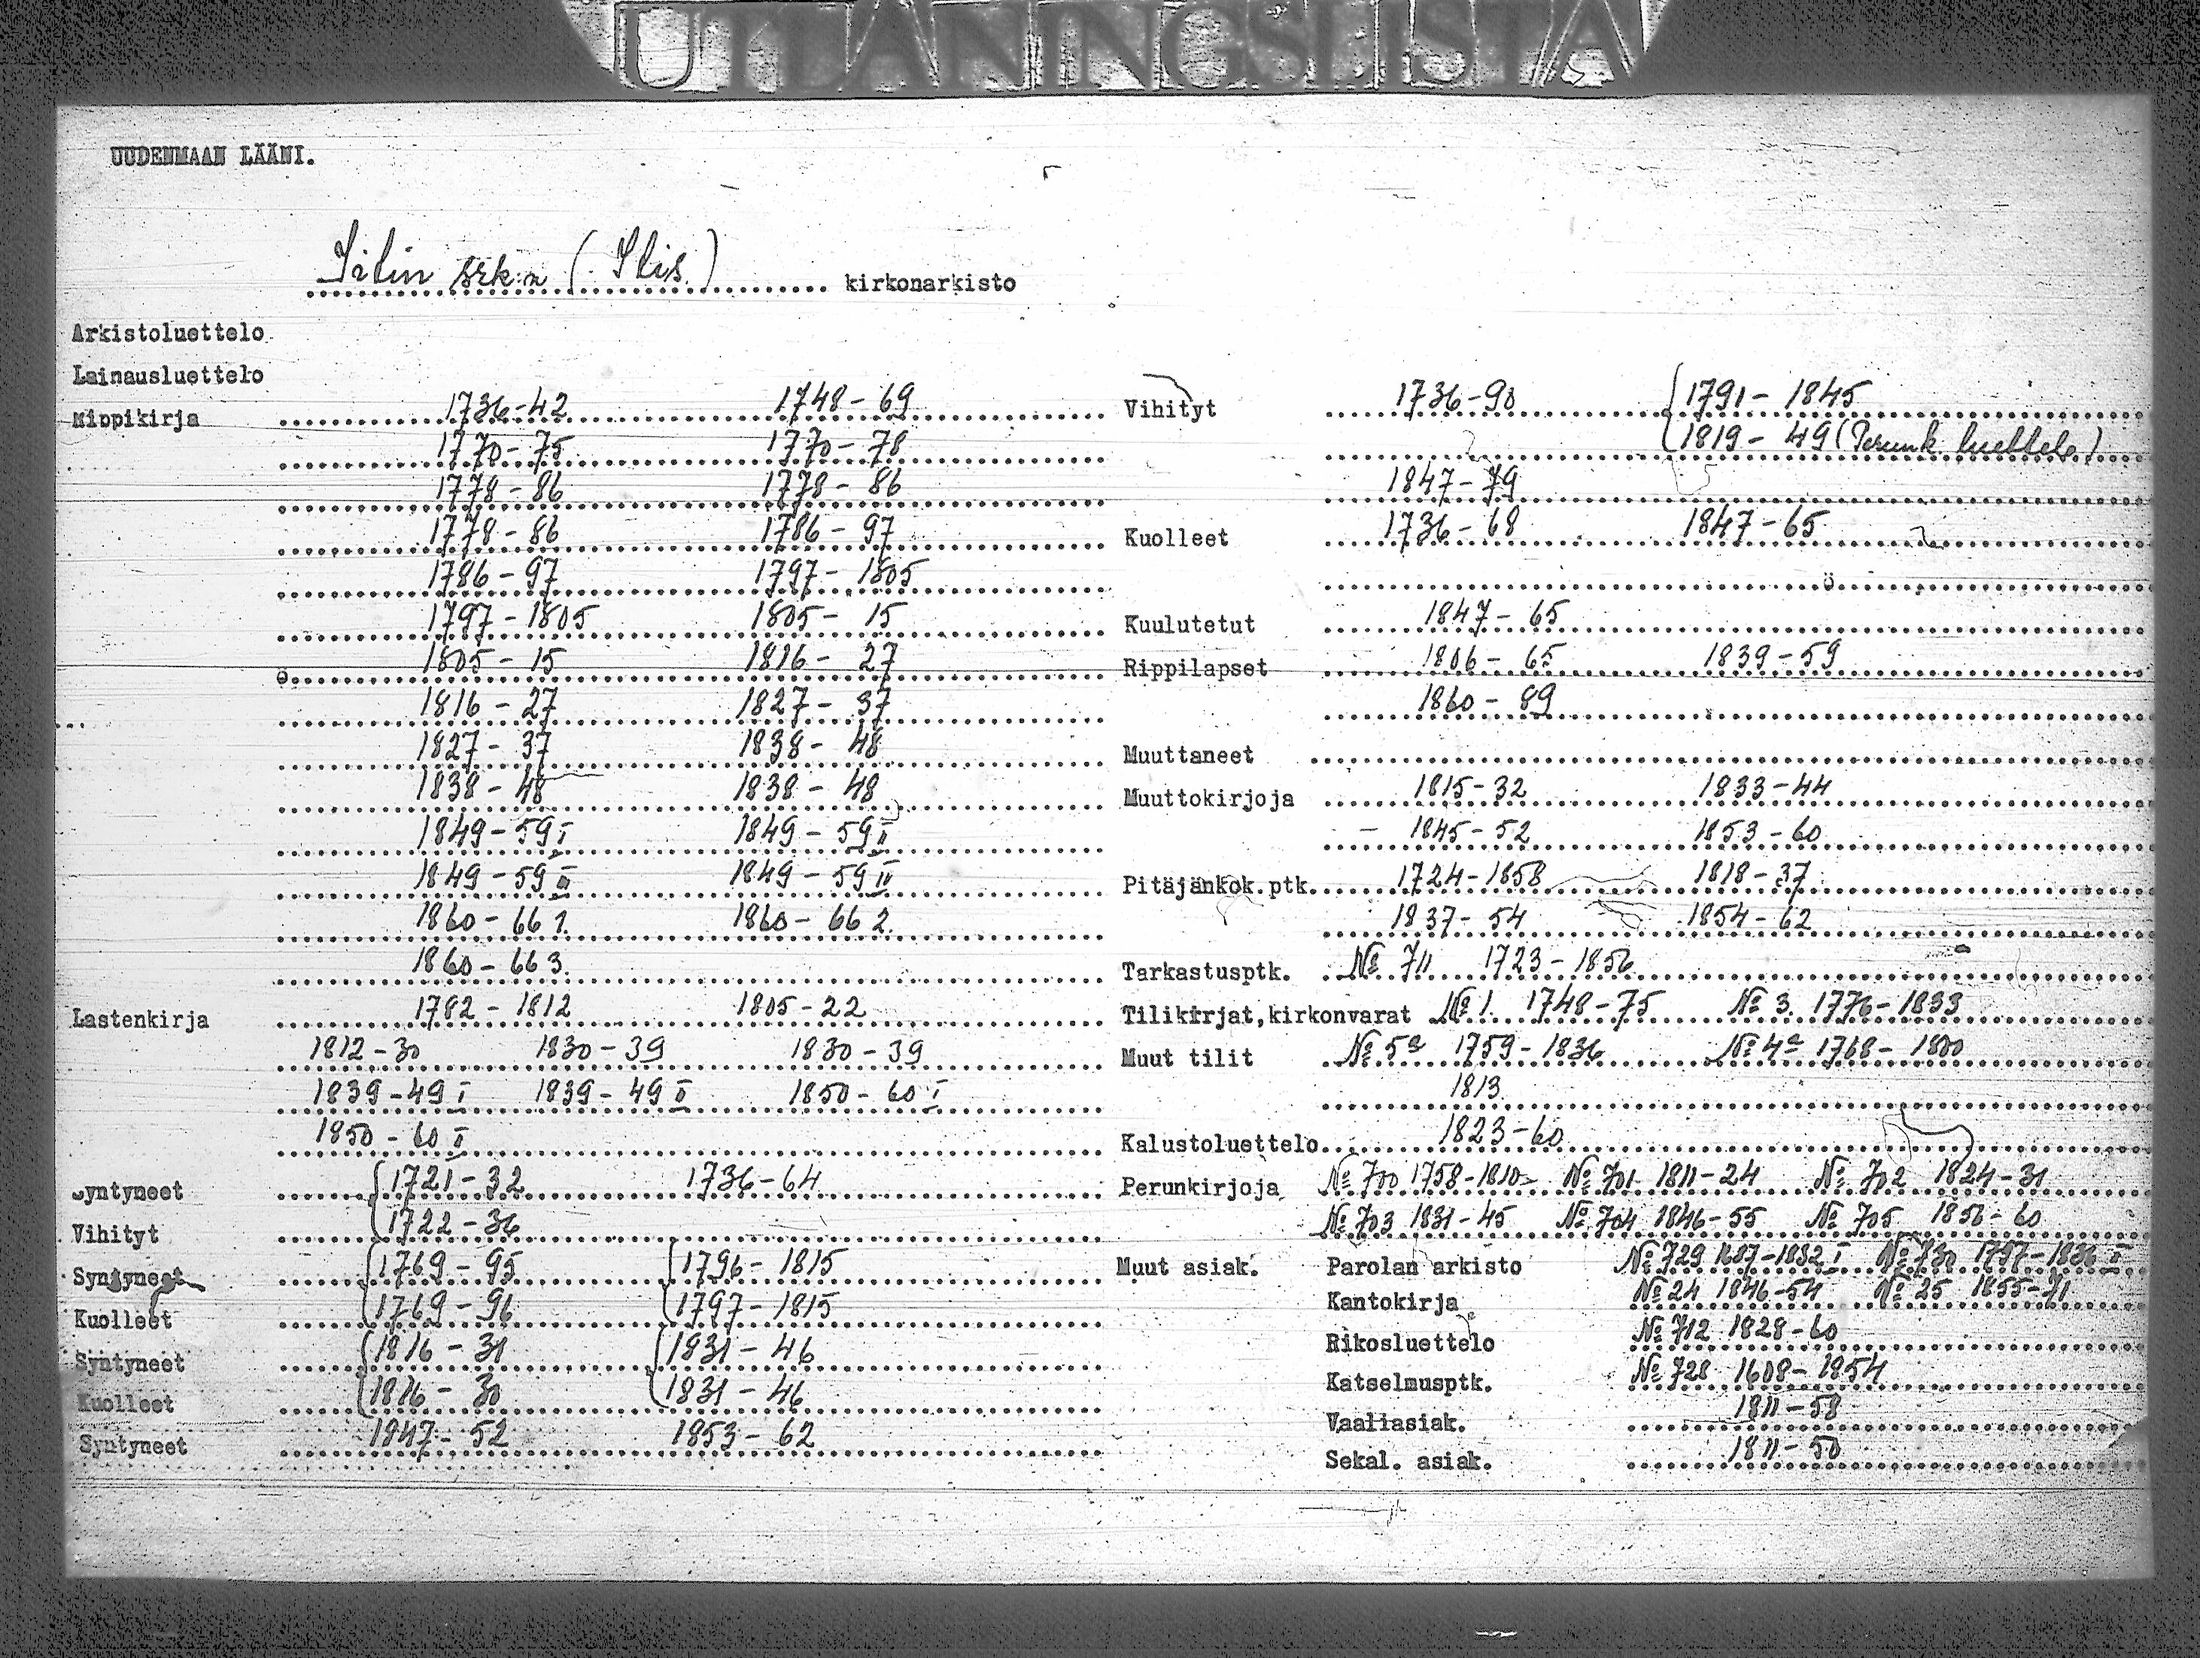 UTLÅNINGSLISTA
UUDENMAAN LÄÄNI.
Iitin srk:n (Itis.) kirkonarkisto
Arkistoluettelo
Lainausluettelo
Rippikirja 1736-42 1748-69
1770-75 1770-78
1778-86 1778-86
1778-86 1786-97
1786-97 1797-1805
1797-1805 1805-15
1805-15 1816-27
1816-27 1827-37
1827-37 1838-48
1838-48 1838-48
1849-59 I 1849-59 II
1849-59 III 1849-59 IV
1860-66 1. 1860-66 2.
1860-66 3.
Lastenkirja 1782-1812 1805-22
1812-30 1830-39 1830-39
1839-49 I 1839-49 II 1850-60 I
1850-60 II
Syntyneet 1721-32 1736-64
Vihityt 1722-36
Syntyneet 1769-95 1796-1815
Kuolleet 1769-96 1797-1815
Syntyneet 1816-31 1831-46
Kuolleet 1816-30 1831-46
Syntyneet 1847-52 1853-62
Vihityt 1736-90 1791-1845
1819-49 (Perunk. luettelo)
1847-79
Kuolleet 1736-68 1847-65
Kuulutetut 1847-65
Rippilapset 1806-65 1839-59
1860-89
Muuttaneet
Muuttokirjoja 1815-32 1833-44
1845-52 1853-60
Pitäjänkok.ptk. 1724-1858 1818-37
1837-54 1854-62
Tarkastusptk. № 711 1723-1856
Tilikirjat,kirkonvarat № 1. 1748-75 № 3 1776-1833
Muut tilit № 5a 1759-1836 № 4a 1768-1800
1813
Kalustoluettelo 1823-60
Perunkirjoja № 700 1758-1810 № 701 1811-24 № 702 1824-31
№ 703 1831-45 № 704 1846-55 № 705 1856-60
Muut asiak. Parolan arkisto № 729 1687-1832 I № 730 1797-1836 II
Kantokirja № 24 1846-54 № 25 1855-71
Rikosluettelo № 712 1828-60
Katselmusptk. № 728 1608-1854
Vaaliasiak. 1811-58
Sekal. asiak. 1811-50